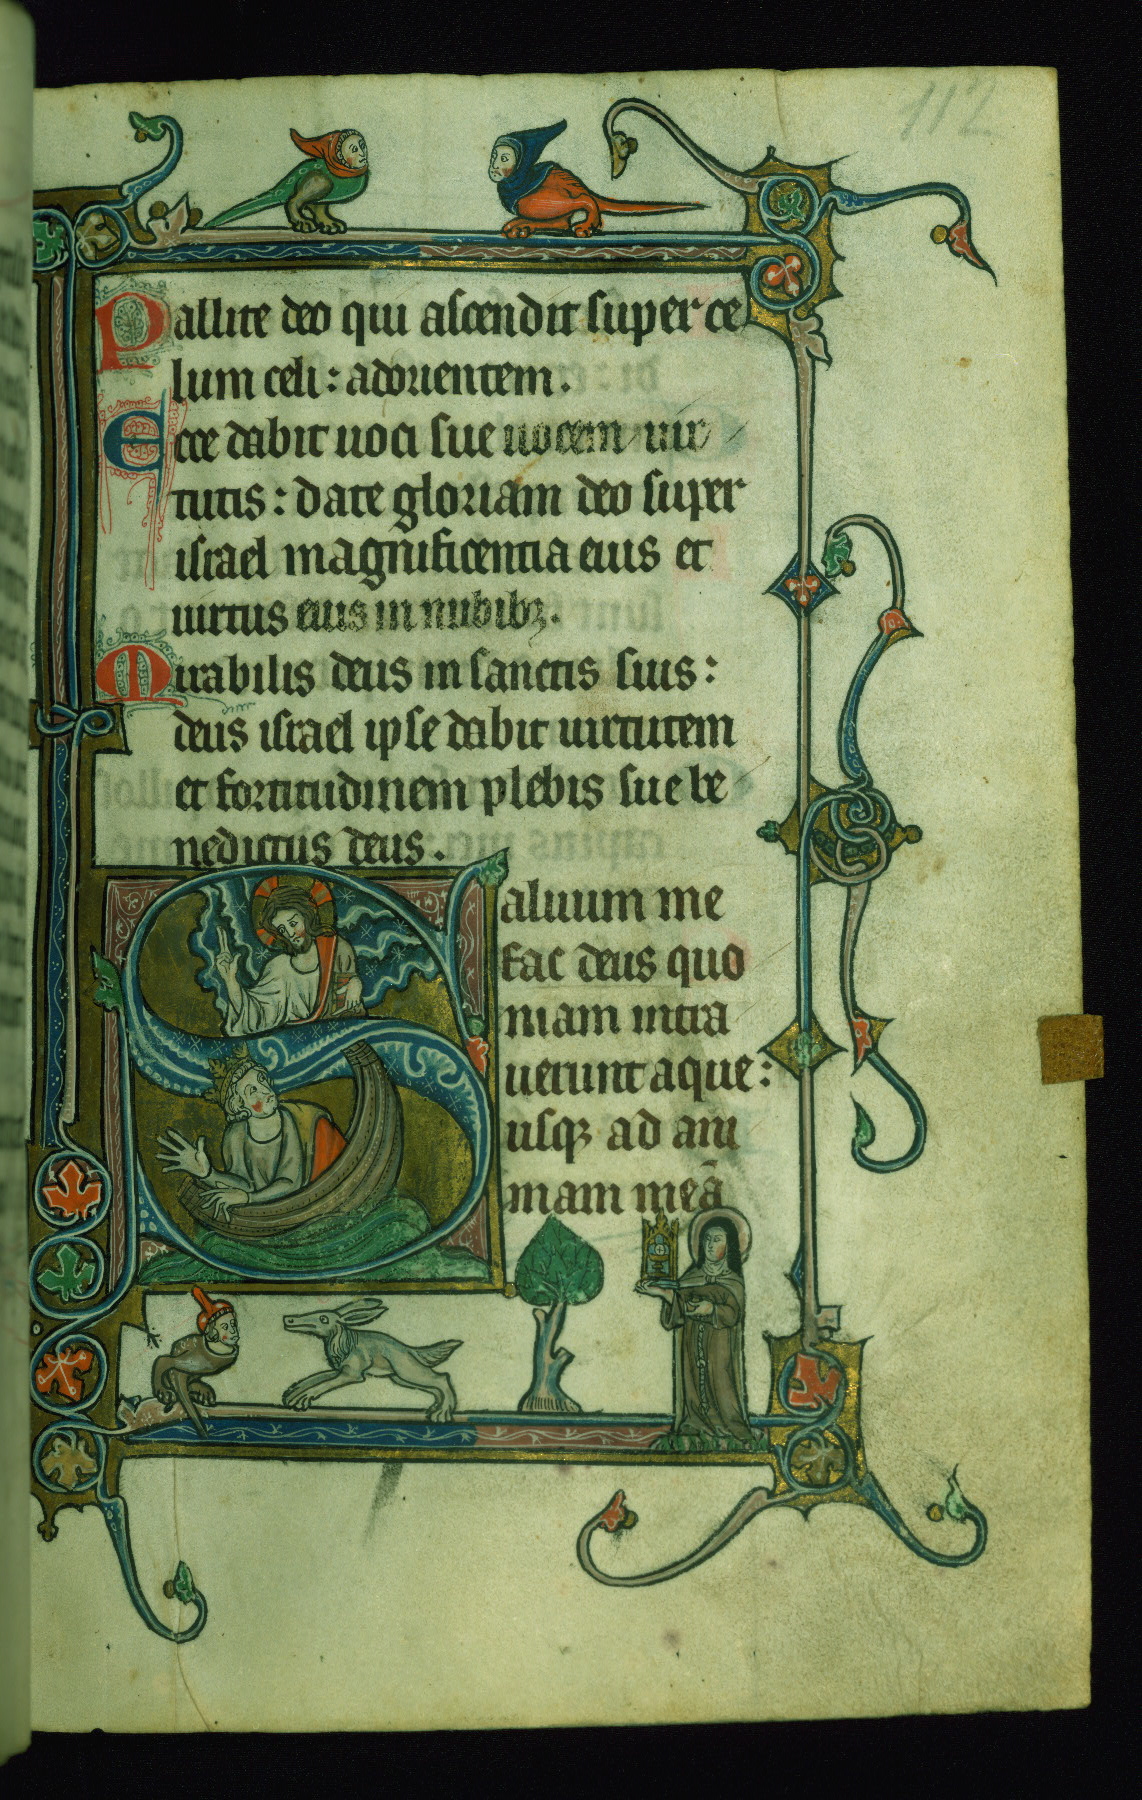 112
Psallite deo qui ascendit super ce
lum celi : ad orientem .
Ecce dabit uoci sue uocem uir
tutis : date gloriam deo super
israel magnificentia eius et
uirtus eius in nubibꝫ .
Mirabilis deus in sanctis suis :
deus israel ipse dabit uirtutem
et fortitudinem plebis sue be
nedictus deus .
Saluum me
fac deus quo
niam intra
uerunt aque :
usqꝫ ad ani
mam meā